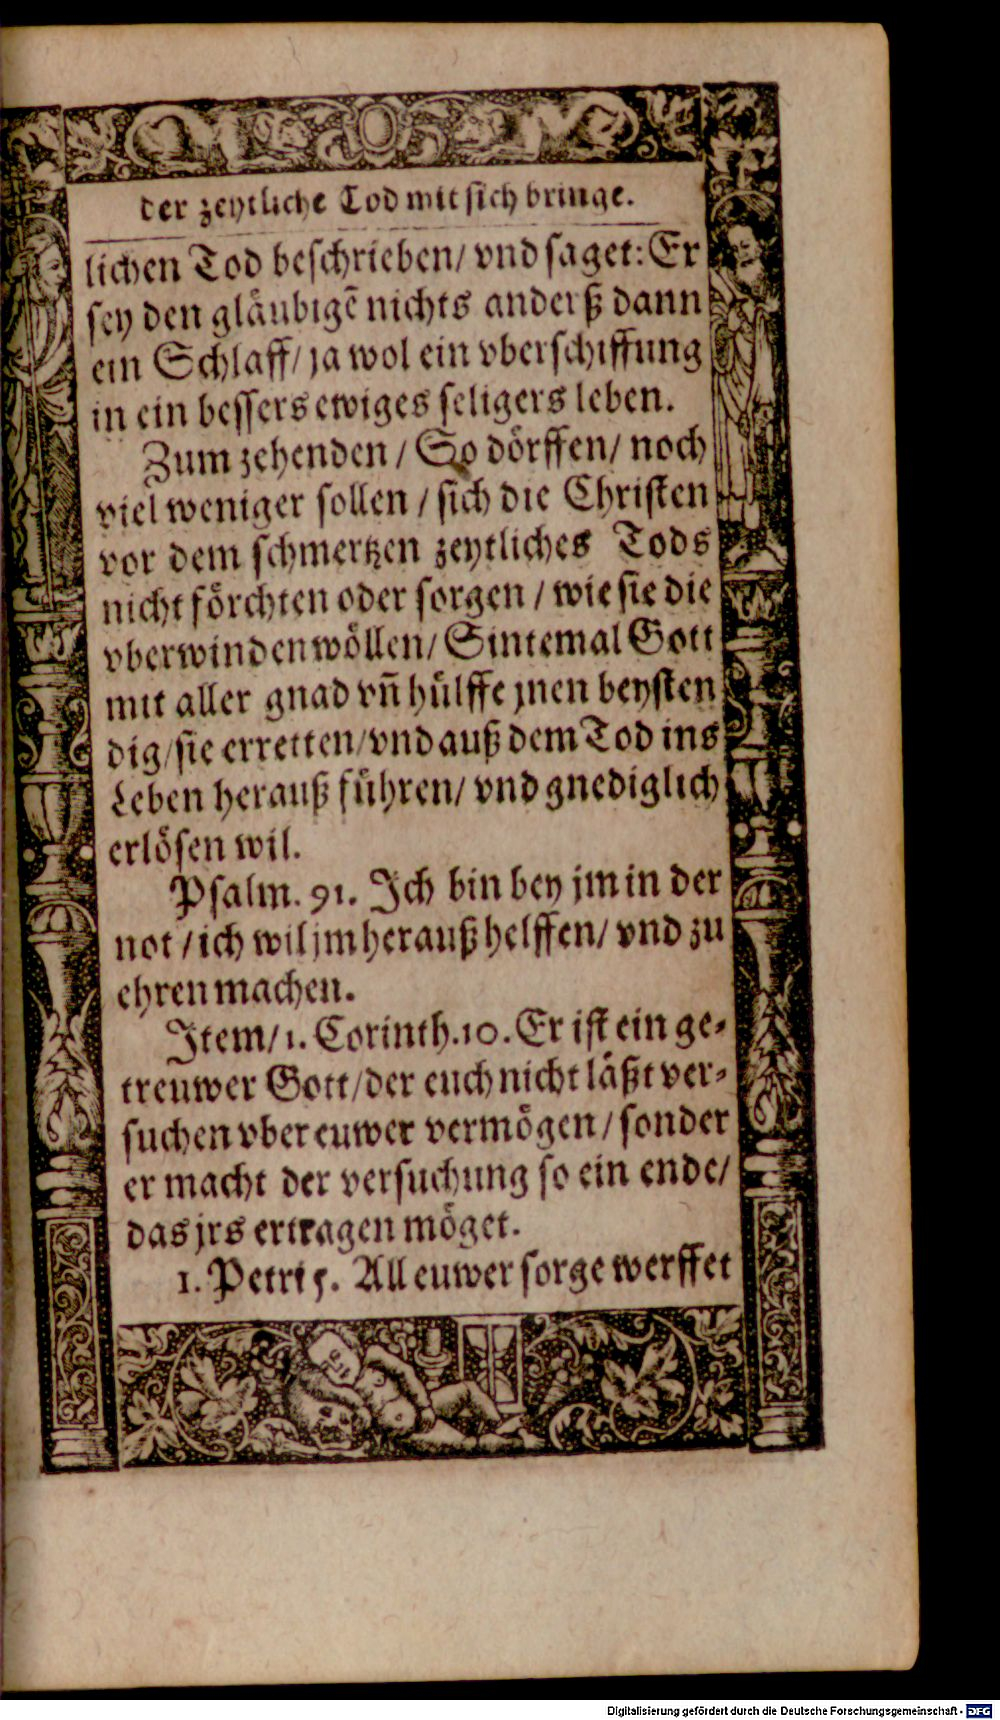 der zeytliche Tod mit sich bringe.
lichen Tod beschrieben/ vnd saget: Er
sey den gläubigẽ nichts anderß dann
ein Schlaff/ ja wol ein vberschiffung
in ein bessers ewiges seligers leben.
Zum zehenden / So dörffen/ noch
viel weniger sollen / sich die Christen
vor dem schmertzen zeytliches Tods
nicht förchten oder sorgen / wie sie die
vberwinden wöllen/ Sintemal Gott
mit aller gnad vñ hülffe jnen beysten
dig/ sie erretten/ vnd auß dem Tod ins
Leben herauß führen/ vnd gnediglich
erlösen wil.
Psalm. 91. Ich bin bey jm in der
not / ich wil jm herauß helffen/ vnd zu
ehren machen.
Item/ 1. Corinth. 10. Er ist ein ge-
treuwer Gott/ der euch nicht läßt ver-
suchen vber euwer vermögen/ sonder
er macht der versuchung so ein ende/
das jrs ertragen möget.
1. Petri 5. All euwer sorge werffet
Digitalisierung gefördert durch die Deutsche Forschungsgemeinschaft - DFG